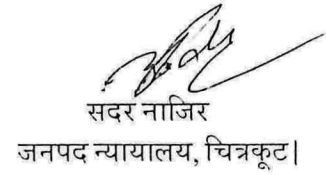 सदर नाजिर
जनपद न्यायालय, चित्रकूट|